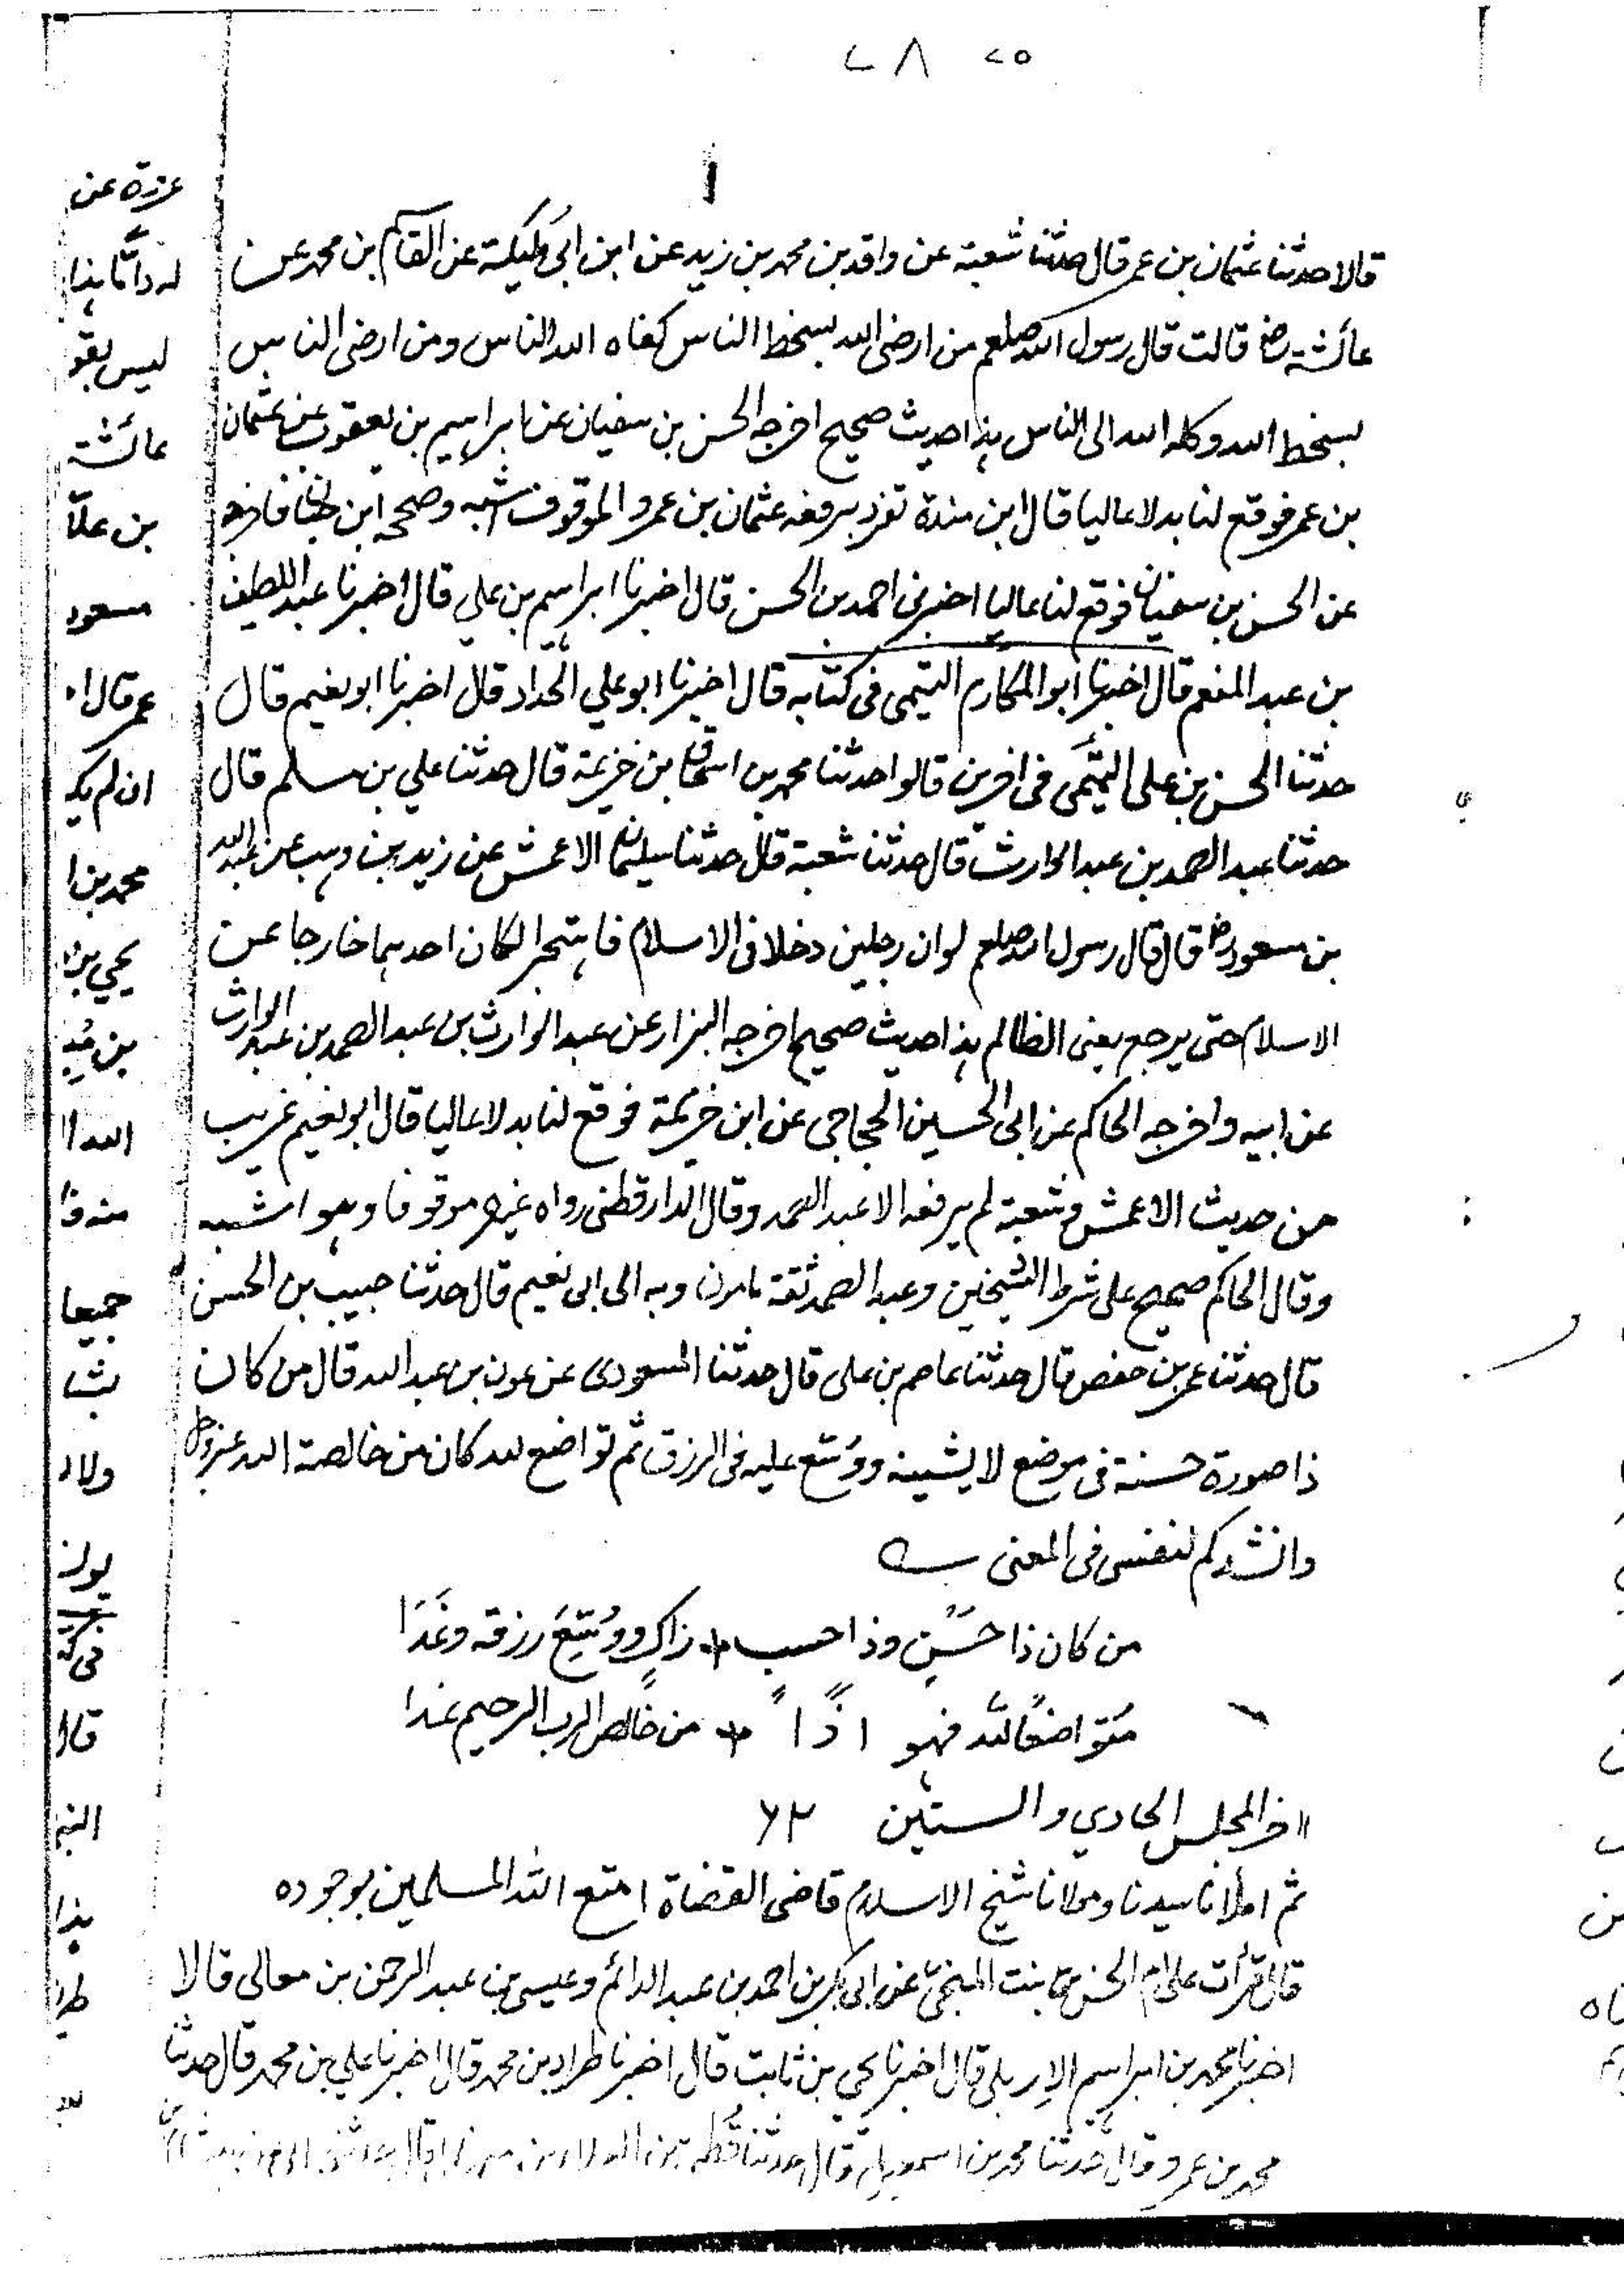 ٧٨ ٧٥
قالا حدثنا عثمان بن عمر قال حدثنا شعبة عن واقد بن محمد بن زيد عن ابن ابى مُليكة عن القاسم بن محمد عن
عائشة رض قالت قال رسول الله صلعم من ارضى الله بسخط الناس كفاه الله الناس ومن ارضى الناس
بسخط الله وكله الله الى الناس هذا حديث صحيح اخرجه الحسن بن سفيان عن ابراهيم بن يعقوب عن عثمان
بن عمر فوقع لنا بدلا عاليا قال ابن مندة تفرد برفعه عثمان بن عمر والموقوف اشبه وصححه ابن حبان فاخرجه
عن الحسن بن سفيان فوقع لنا عاليا اخبرنى احمد بن الحسن قال اخبرنا ابراهيم بن علي قال اخبرنا عبد اللطيف
بن عبد المنعم قال اخبرنا ابو المكارم التيمى فى كتابه قال اخبرنا ابو علي الحداد قال اخبرنا ابو نعيم قال
حدثنا الحسن بن على التيمى فى اخرين قالوا حدثنا محمد بن اسحاق بن خزيمة قال حدثنا علي بن مسلم قال
حدثنا عبد الصمد بن عبد الوارث قال حدثنا شعبة قال حدثنا سليمان الاعمش عن زيد بن وهب عن عبد الله
بن مسعود رض قال قال رسول الله صلعم لو ان رجلين دخلا فى الاسلام فاهتجرا لكان احدهما خارجا عن
الاسلام حتى يرجع يعنى الظالم هذا حديث صحيح اخرجه البزار عن عبد الوارث بن عبد الصمد بن عبد الوارث
عن ابيه واخرجه الحاكم عن ابى الحسين الحجاجى عن ابن خزيمة فوقع لنا بدلا عاليا قال ابو نعيم غريب
من حديث الاعمش و شعبة لم يرفعه الا عبد الصمد وقال الدارقطنى رواه غيره موقوفا وهو اشبه
وقال الحاكم صحيح على شرط الشيخين وعبد الصمد ثقة مامون وبه الى ابى نعيم قال حدثنا حبيب بن الحسن
قال حدثنا عمر بن حفص قال حدثنا عاصم بن على قال حدثنا المسعودى عن عون بن عبد الله قال من كان
ذا صورة حسنة فى موضع لا يشينه ووُسّع عليه فى الرزق ثم تواضع لله كان من خالصة الله عز وجل
وانشدكم لنفسى فى المعنى
من كان ذا حَسَنٍ وذا حسب * زاكٍ ووُسِّعَ رزقه وغَدَا
مُتواضعًا لله فهو اذًا * من خالص الرب الرحيم غدا
اخر المجلس الحادي والستين ٦٢
ثم املأنا سيدنا ومولانا شيخ الاسلام قاضى القضاة امتع الله المسلمين بوجوده
قال قرأت على ام الحسن بنت المنجى عن ابى بكر بن احمد بن عبد الدائم وعيسى بن عبد الرحمن بن معالى قالا
اخبرنا محمد بن ابراهيم الاربلى قال اخبرنا يحي بن ثابت قال اخبرنا طراد بن محمد قال اخبرنا علي بن محمد قال حدثنا
محمد بن عمرو قال حدثنا محمد بن اسمعيل قال حدثنا قطبة بن العلاء بن
عزرة عن
ليس بقو
عائشة
بن علا
مسعود
عمر قال
ان لم يك
محمد بن ا
يحيي بن
جميعا
ولا
قال